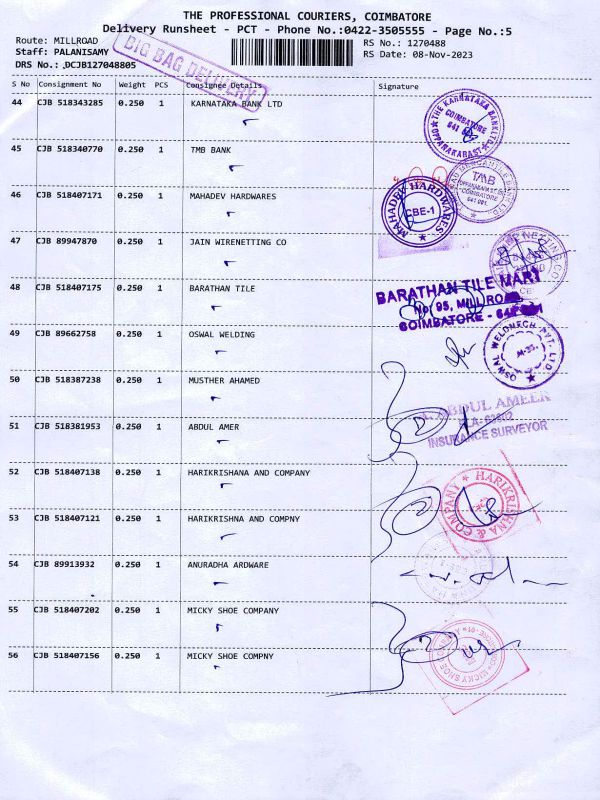 THE PROFESSIONAL COURIERS, COIMBATORE
Delivery Runsheet - PCT - Phone No.:0422-3505555 - Page No.:5
Route: MILLROAD
Staff: PALANISAMY
DRS No.: DCJB127048805
RS No.: 1270488
RS Date: 08-Nov-2023
BIG BAG DELIVERY
S No Consignment No Weight PCS Consignee Details Signature
44 CJB 518343285 0.250 1 KARNATAKA BANK LTD
THE KARNATAKA BANK LTD.
COIMBATORE
641
45 CJB 518340770 0.250 1 TMB BANK
TMB
COIMBATORE
641 001.
46 CJB 518407171 0.250 1 MAHADEV HARDWARES
MAHADEV HARDWARES
CBE-1
47 CJB 89947870 0.250 1 JAIN WIRENETTING CO
48 CJB 518407175 0.250 1 BARATHAN TILE
BARATHAN TILE MART
No: 95, MILL ROAD
COIMBATORE - 641 001
49 CJB 89662758 0.250 1 OSWAL WELDING
OSWAL WELDMECH PVT. LTD.
50 CJB 518387238 0.250 1 MUSTHER AHAMED
51 CJB 518381953 0.250 1 ABDUL AMER
ABDUL AMEER
INSURANCE SURVEYOR
52 CJB 518407138 0.250 1 HARIKRISHANA AND COMPANY
HARIKRISHNA & COMPANY
2
53 CJB 518407121 0.250 1 HARIKRISHNA AND COMPNY
54 CJB 89913932 0.250 1 ANURADHA ARDWARE
55 CJB 518407202 0.250 1 MICKY SHOE COMPANY
MICKY SHOE
2
56 CJB 518407156 0.250 1 MICKY SHOE COMPNY